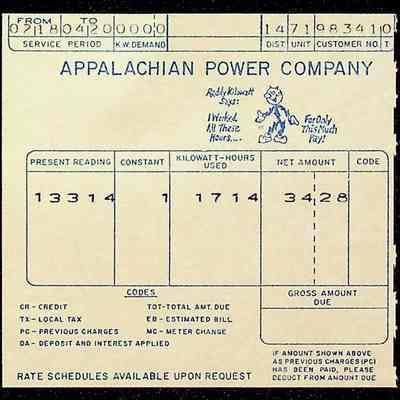 FROM TO
02 18 04 20 0000 1471983410
SERVICE PERIOD K.W. DEMAND DIST UNIT CUSTOMER NO. T
APPALACHIAN POWER COMPANY
Reddy Kilowatt
Says:
I Worked
All These
Hours....
For Only
This Much
Pay!
PRESENT READING CONSTANT KILOWATT-HOURS USED NET AMOUNT CODE
13314 1 1714 34 28
CODES
CR - CREDIT TOT-TOTAL AMT. DUE
TX - LOCAL TAX EB - ESTIMATED BILL
PC - PREVIOUS CHARGES MC - METER CHANGE
DA - DEPOSIT AND INTEREST APPLIED
GROSS AMOUNT
DUE
IF AMOUNT SHOWN ABOVE
AS PREVIOUS CHARGES (PC)
HAS BEEN PAID, PLEASE
DEDUCT FROM AMOUNT DUE
RATE SCHEDULES AVAILABLE UPON REQUEST